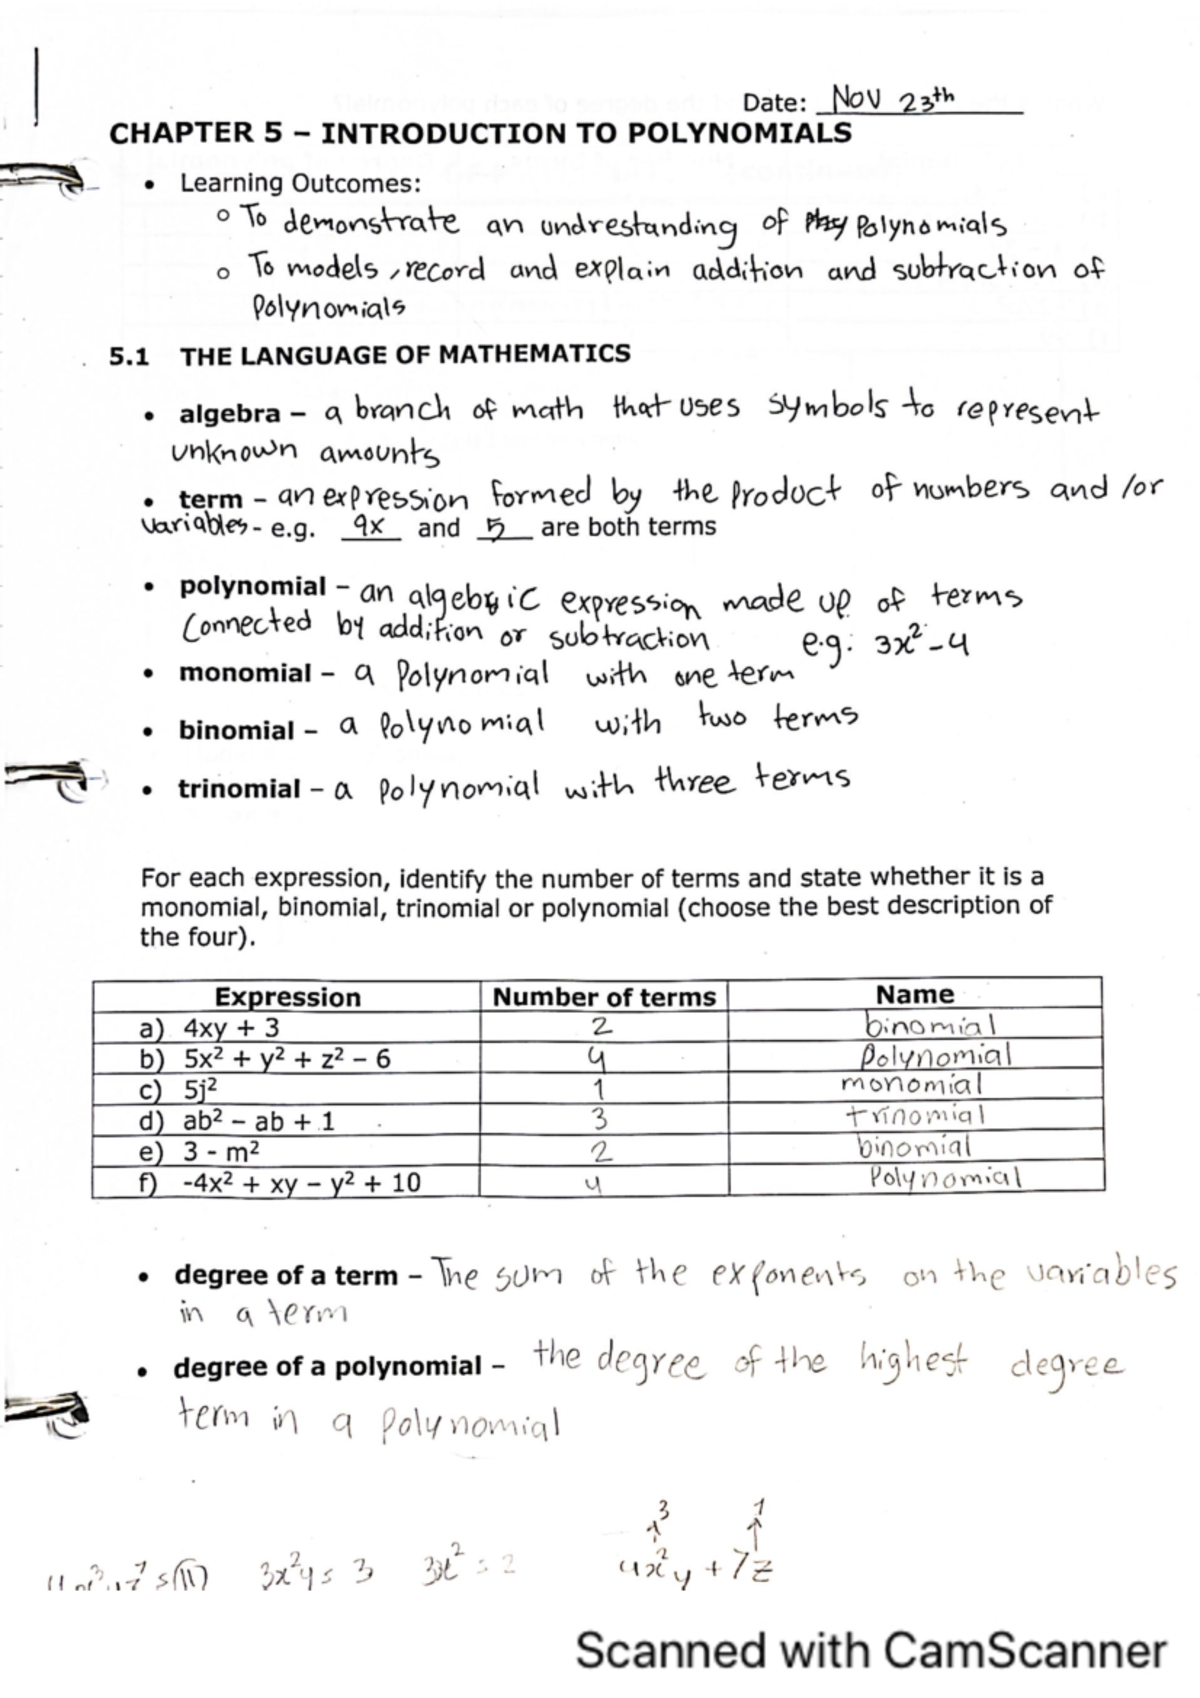 Date: Nov 23th
CHAPTER 5 – INTRODUCTION TO POLYNOMIALS
• Learning Outcomes:
o To demonstrate an undrestanding of Polynomials
o To models, record and explain addition and subtraction of
Polynomials
5.1 THE LANGUAGE OF MATHEMATICS
• algebra – a branch of math that uses symbols to represent
unknown amounts
• term – an expression formed by the product of numbers and /or
variables - e.g. 9x and 5 are both terms
• polynomial – an algebric expression made up of terms
Connected by addition or subtraction e.g: 3x² - 4
• monomial – a Polynomial with one term
• binomial – a Polynomial with two terms
• trinomial – a Polynomial with three terms
For each expression, identify the number of terms and state whether it is a
monomial, binomial, trinomial or polynomial (choose the best description of
the four).
Expression Number of terms Name
a) 4xy + 3 2 binomial
b) 5x² + y² + z² – 6 4 Polynomial
c) 5j² 1 monomial
d) ab² – ab + 1 3 trinomial
e) 3 - m² 2 binomial
f) -4x² + xy – y² + 10 4 Polynomial
• degree of a term – The sum of the exponents on the variables
in a term
• degree of a polynomial – the degree of the highest degree
term in a polynomial
3 1
3x²y = 3 3x² = 2 4x²y + 7z
Scanned with CamScanner